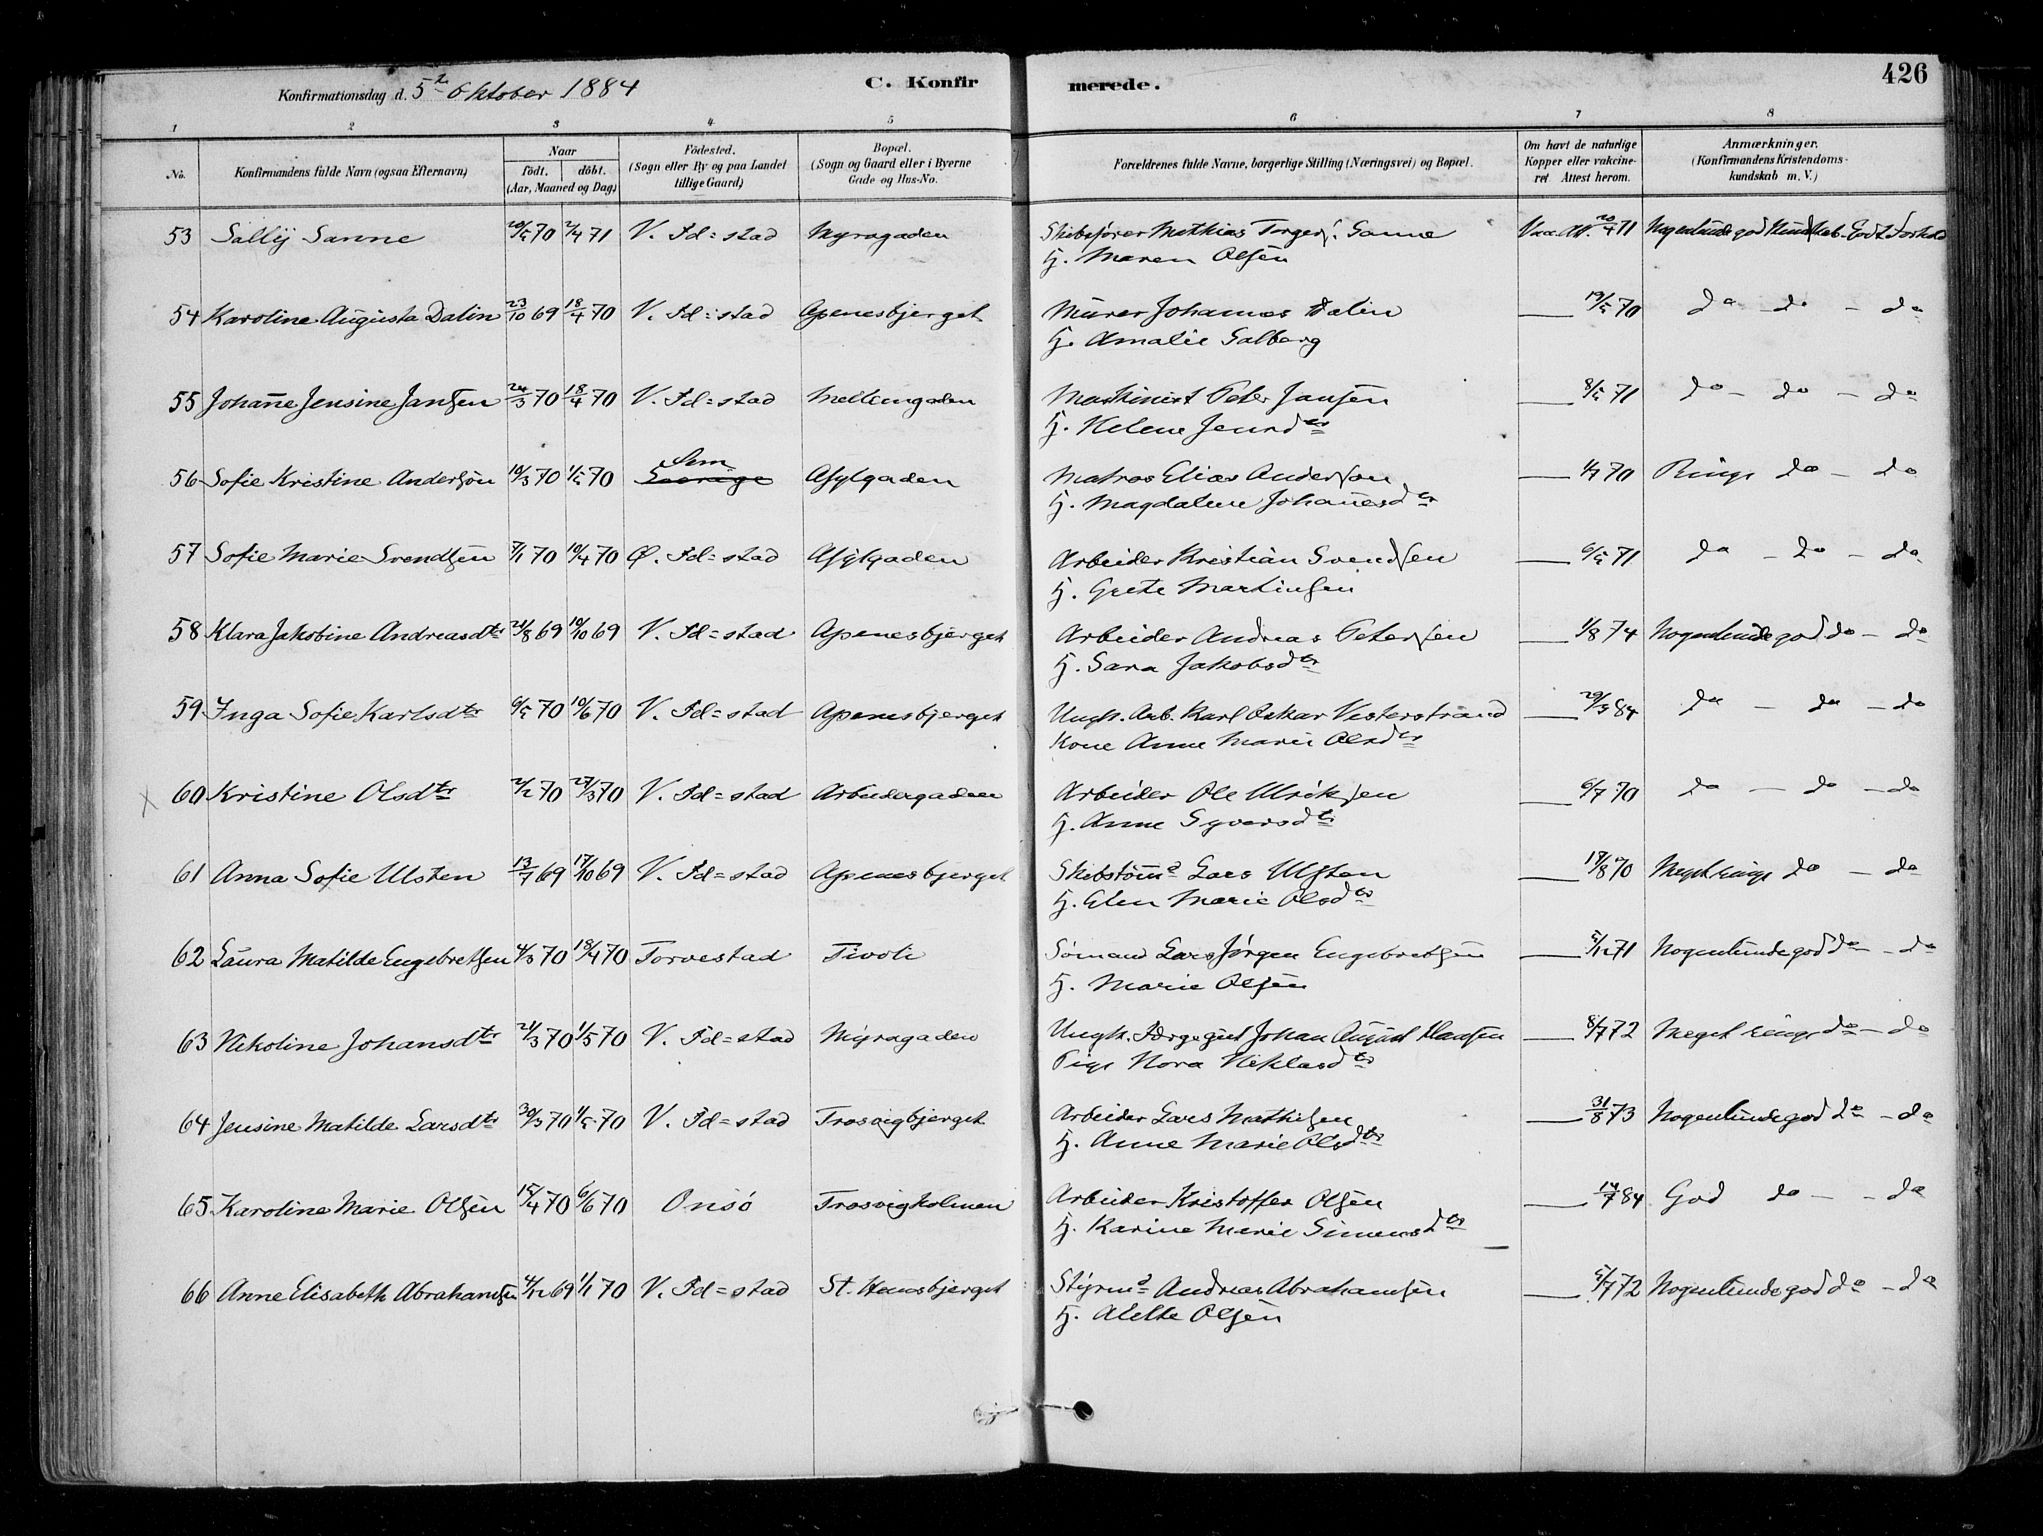 426
Konfirmationsdag d. 5te Oktober 1884 C. Konfirmerede.
1 2 3 4 5 6 7 8
No. Konfirmandens fulde Navn (ogsaa Efternavn) Naar födt. döbt. (Aar, Maaned og Dag) Födested. (Sogn eller By og paa Landet tillige Gaard) Bopæl. (Sogn og Gaard eller i Byerne Gade og Hus-No. Forældrenes fulde Navne, borgerlige Stilling (Næringsvei) og Bopæl. Om havt de naturlige Kopper eller vakcineret Attest herom. Anmærkninger. (Konfirmandens Kristendomskundskab m. V.)
53 Sally Sanne 20/5 70 2/4 71 V. Fd=stad Myragaden Skibsfører Mathias Torgers. Sanne Vacc. Att. 20/4 71 Nogenlunde god Kundskab. Godt Forhold
H. Maren Olsen
54 Karoline Augusta Dalin 23/10 69 18/4 70 V. Fd=stad Apenesbjerget Murer Johannes Dalin — 19/5 70 do - do - do
H. Amalie Salberg
55 Johanne Jensine Jansen 24/3 70 18/4 70 V. Fd=stad Mellemgaden Maskinist Peter Jansen — 8/5 71 do - do - do
H. Helene Jensdtr
56 Sofie Kristine Anderson 10/3 70 1/5 70 Sem Sverige Asylgaden Matros Elias Anderson — 1/7 70 Ringe do - do
H. Magdalene Johannesdtr
57 Sofie Marie Svendsen 7/1 70 10/4 70 Ø. Fd=stad Asylgaden Arbeider Kristian Svendsen — 6/5 71 do - do - do
H. Grete Martinsen
58 Klara Jakobine Andreasdtr 21/8 69 10/10 69 V. Fd=stad Apenesbjerget Arbeider Andreas Petersen — 1/8 74 Nogenlunde god do - do
H. Sara Jakobsdtr
59 Inga Sofie Karlsdtr 6/5 70 10/6 70 V. Fd=stad Apenesbjerget Ungk. Arb. Karl Oskar Vesterstrand — 29/5 84 do - do - do
Kone Anne Marie Olsdtr
60 Kristine Olsdtr 2/2 70 27/3 70 V. Fd=stad Arbeidergaden Arbeider Ole Ulriksen — 6/7 70 do - do - do
H. Anne Syversdtr
61 Anna Sofie Ulsten 13/7 69 17/10 69 V. Fd=stad Apenesbjerget Skibstømmd Lars Ulsten — 17/8 70 Meget ringe do - do
H. Elen Marie Olsdtr
62 Laura Matilde Engebretsen 4/3 70 18/4 70 Torvestad Tivoli Sømand Lars Jørgen Engebretsen — 5/12 71 Nogenlunde god do - do
H. Marie Olsen
63 Nikoline Johansdtr 21/3 70 1/5 70 V. Fd=stad Myragaden Ungk. Færgegut Johan August Hansen — 8/7 72 Meget ringe do - do
Pige Nora Niklasdtr
64 Jensine Matilde Larsdtr 30/3 70 1/5 70 V. Fd=stad Trosvigbjerget Arbeider Lars Mathisen — 31/8 73 Nogenlunde god do - do
H. Anne Marie Olsdtr
65 Karoline Marie Olsen 15/4 70 6/6 70 Onsö Trosvigholmen Arbeider Kristoffer Olsen — 14/7 84 God do - - do
H. Karine Marie Simensdtr
66 Anne Elisabeth Abrahamsen 4/12 69 1/1 70 V. Fd=stad St. Hansbjerget Styrmd Andreas Abrahamsen — 5/7 72 Nogenlunde god do - do
H. Alette Olsen